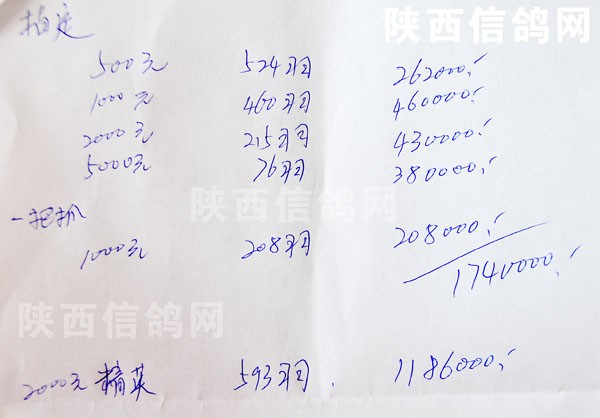 陕西信鸽网
指定
500元 524羽 262000.-
1000元 460羽 460000.-
2000元 215羽 430000.-
5000元 76羽 380000.-
陕西信鸽网
一把抓
1000元 208羽 208000.-
1740000.-
陕西信鸽网
2000元 精英 593羽. 1186000.-